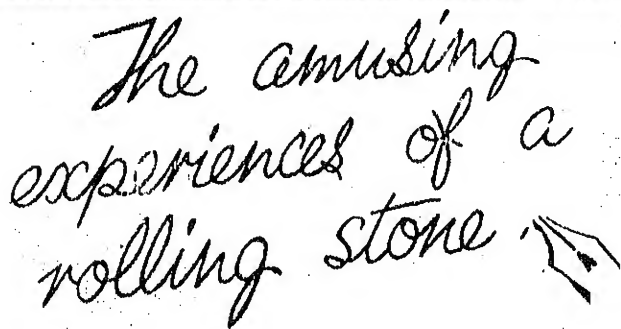 The amusing
experiences of a
rolling stone.